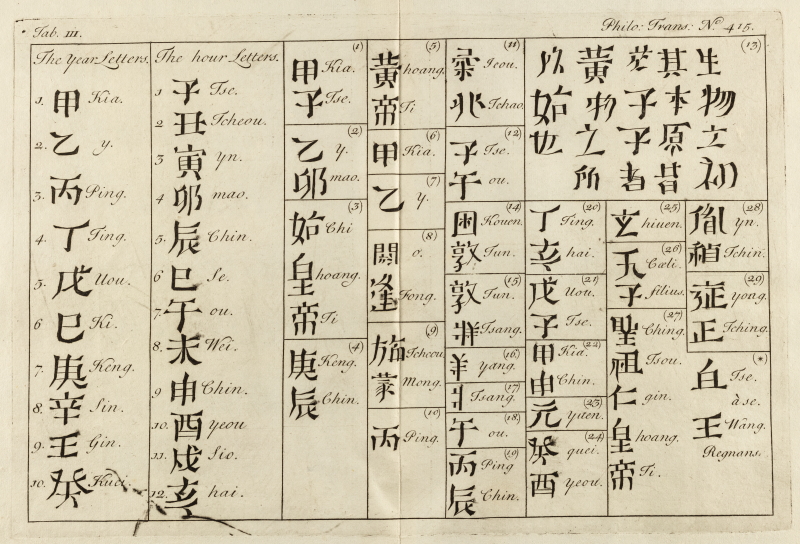 Tab. III.
Philo: Trans: No. 415.
The Year Letters.
1. 甲 Kia.
2. 乙 y.
3. 丙 Ping.
4. 丁 Ting.
5. 戊 Uou.
6 巳 Ki.
7. 庚 Keng.
8. 辛 Sin.
9. 壬 Gin.
10. 癸 Kuei.
The hour Letters.
1 子 Tse.
2 丑 Tcheou.
3 寅 yn.
4 卯 mao.
5. 辰 Chin.
6 巳 Se.
7. 午 ou.
8. 未 Wei.
9 申 Chin.
10. 酉 yeou
11. 戌 Sio.
12. 亥 hai.
(1)
甲 Kia.
子 Tse.
(2)
乙 y.
卯 mao.
(3)
始 Chi
皇 hoang.
帝 Ti
(4)
庚 Keng.
辰 Chin.
(5)
黃 hoang.
帝 Ti
(6)
甲 Kia.
(7)
乙 y.
(8)
閼 o.
逢 Fong.
(9)
Tcheou
蒙 mong.
(10)
丙 Ping.
(11)
Ieou.
兆 Tchao.
(12)
子 Tse.
午 ou.
(13)
生物立初
其本原昔
茫子子者
黃物之所
以始也
(14)
困 Kouen.
敦 Tun.
(15)
敦 Tun.
牂 Tsang.
(16)
羊 yang.
(17)
爿 Tsang.
(18)
午 ou.
(19)
丙 Ping
辰 Chin.
(20)
丁 Ting.
亥 hai.
(21)
戊 Uou.
子 Tse.
(22)
甲 Kia.
申 Chin.
(23)
元 yuen.
(24)
癸 quei.
酉 yeou.
(25)
玄 hiuen.
(26)
天 Cœli.
子 filius.
(27)
聖 Ching.
祖 Tsou.
仁 gin.
皇 hoang.
帝 Ti.
(28)
胤 yn.
禎 Tchin.
(29)
雍 yong.
正 Tching.
(*)
Tse.
à se.
王 Wâng.
Regnans.